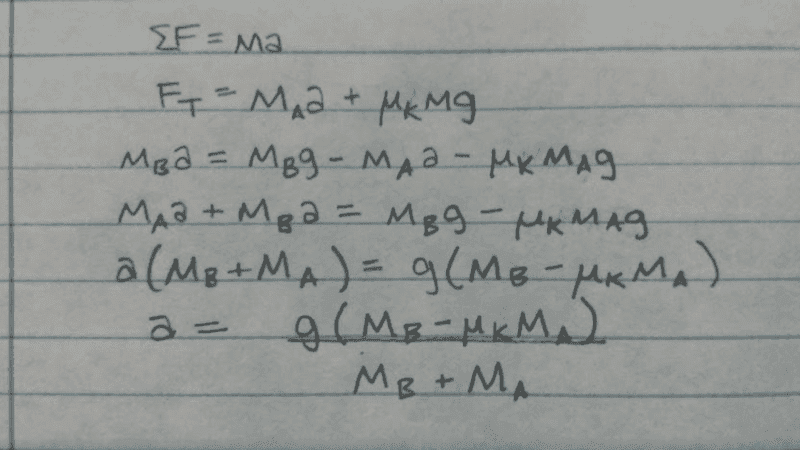 ΣF = ma
F_T = m_A a + μ_K mg
m_B a = m_B g - m_A a - μ_K m_A g
m_A a + m_B a = m_B g - μ_K m_A g
a(m_B + m_A) = g(m_B - μ_K m_A)
a = g(m_B - μ_K m_A)
m_B + m_A